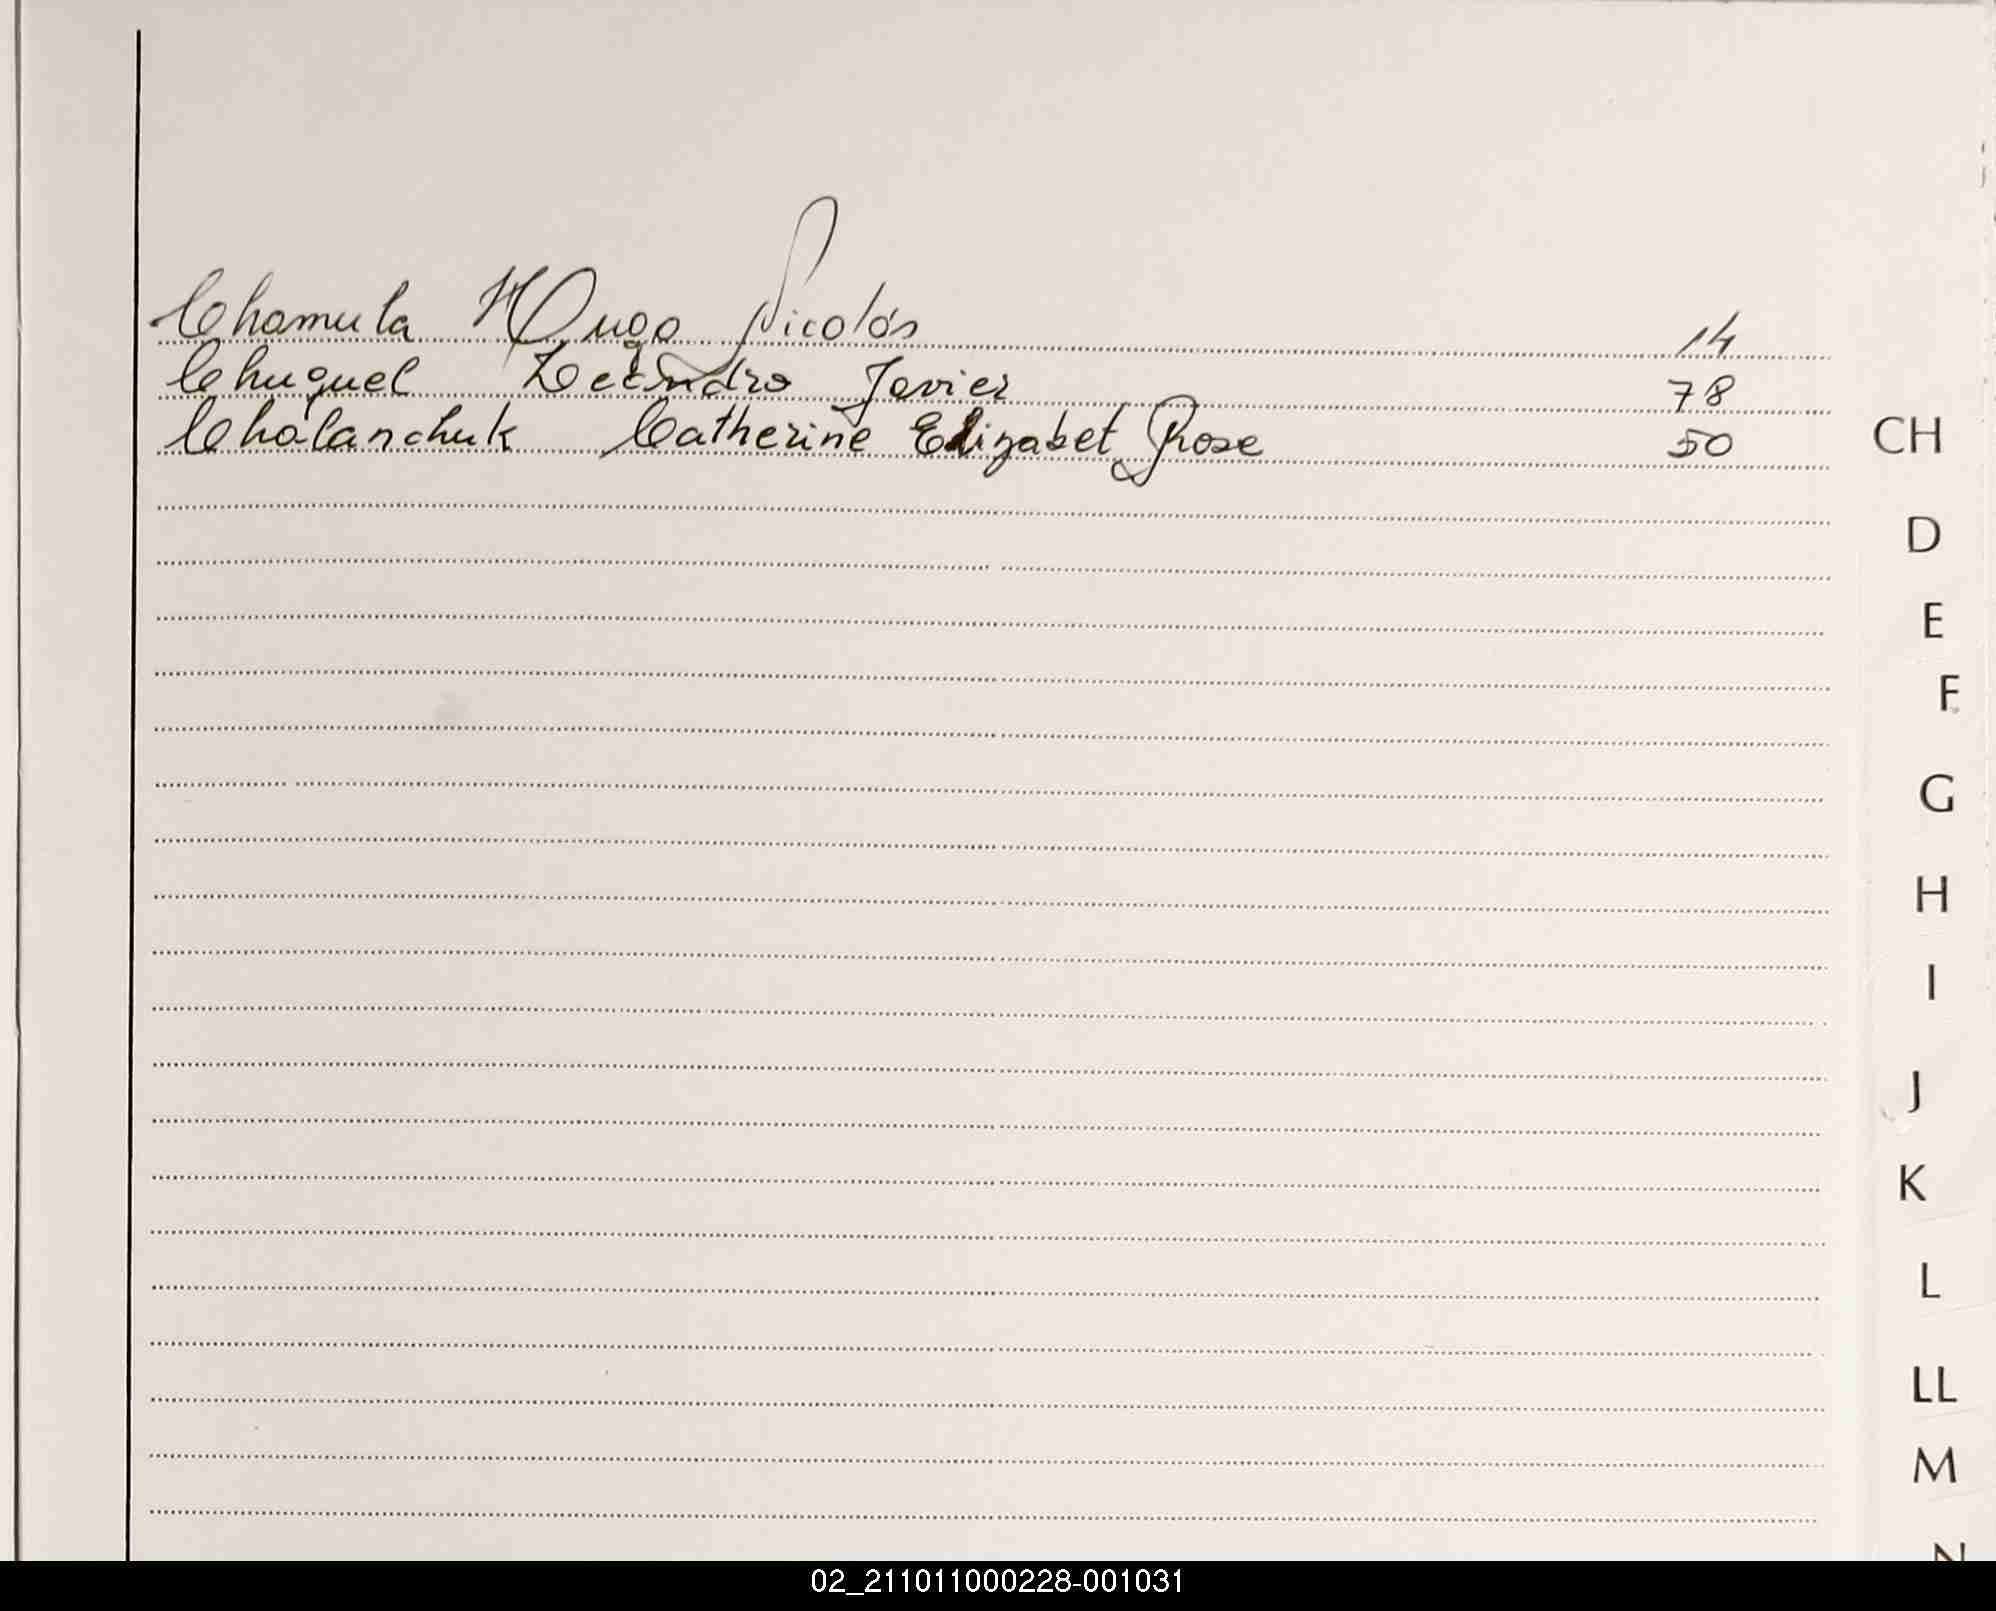 Chamula Hugo Nicolás 14
Chuquel Leandro Javier 78
Cholanchuk Catherine Elizabet Rose 50
CH
D
E
F
G
H
I
J
K
L
LL
M
N
02_211011000228-001031